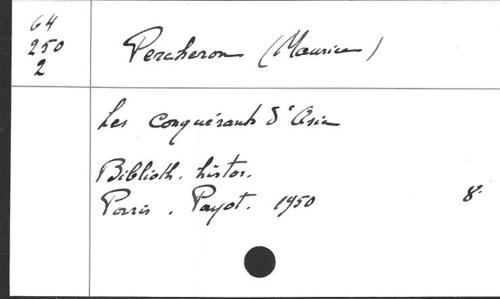 64
250
2
Percheron (Maurice)
Les conquérants d'Asie
Biblioth. histor.
Paris. Payot. 1950 8°